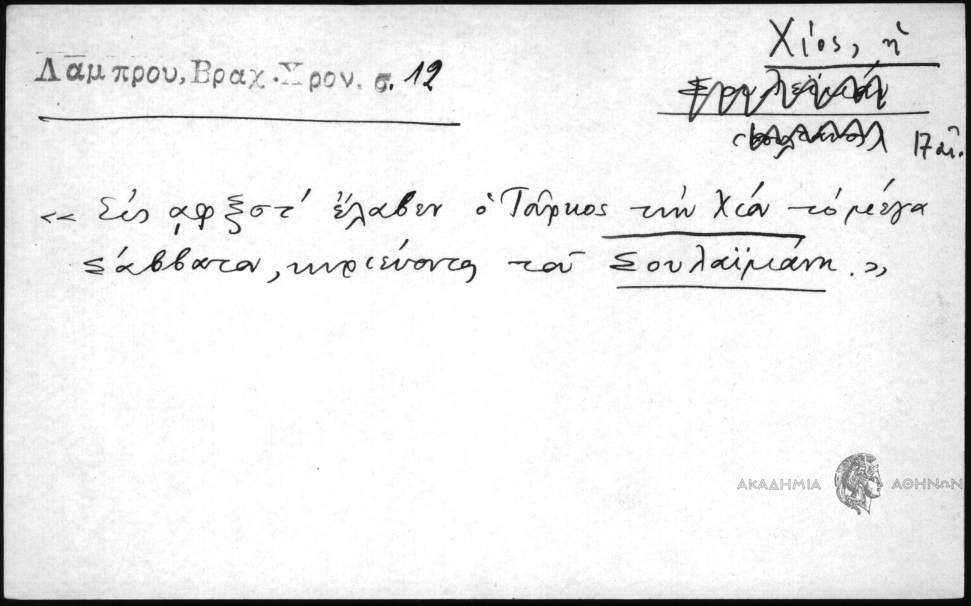 Λαμπρου, Βραχ. Χρον. σ. 12
Χίος, ἡ
17 αἰ.
«Εἰς ͵αφξστʹ ἔλαβεν ὁ Τοῦρκος τὴν Χίον τὸ μέγα
Σάββατον, κυριεύοντος τοῦ Σουλαϊμάνη.»
ΑΚΑΔΗΜΙΑ ΑΘΗΝΩΝ